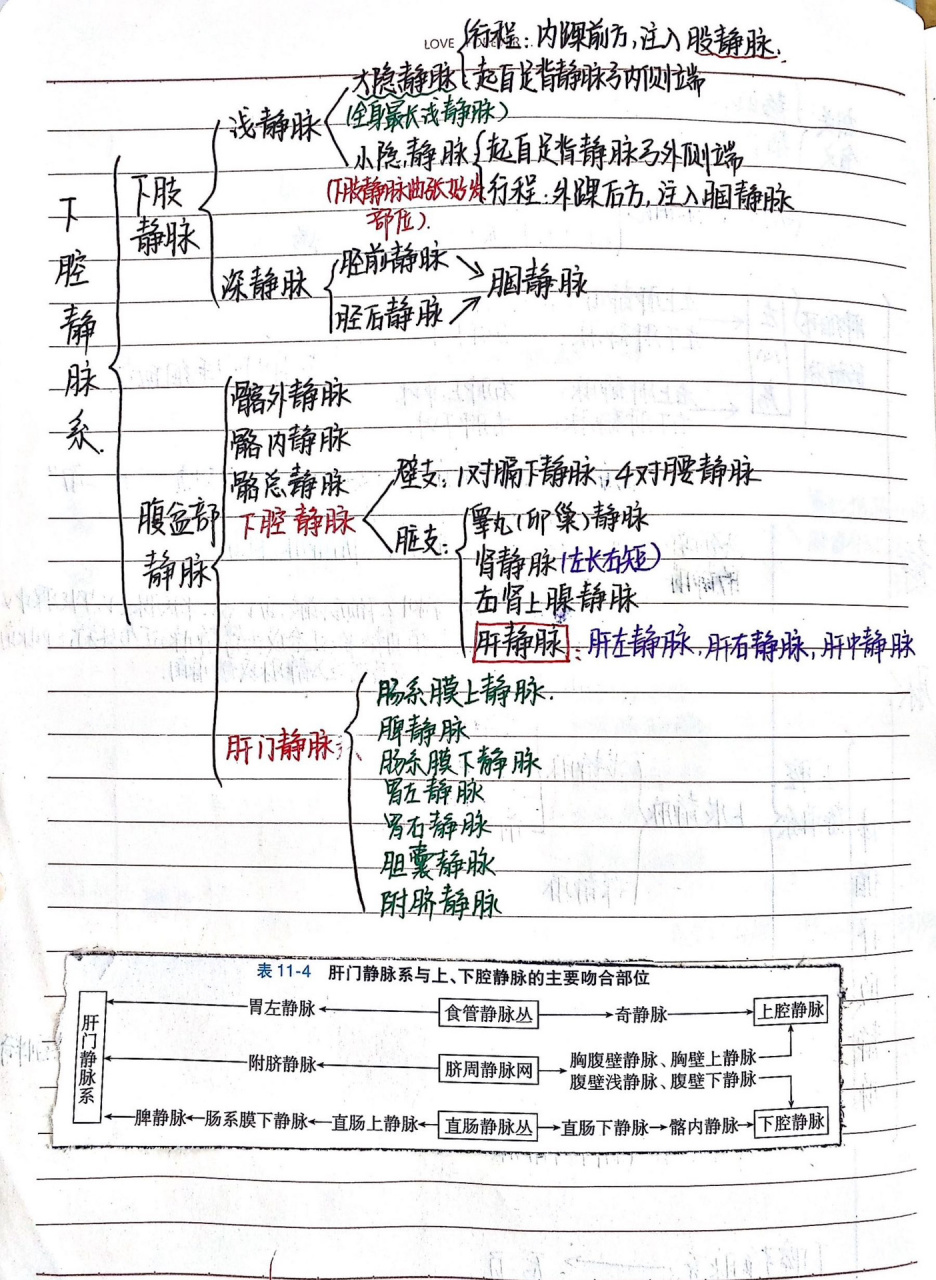 LOVE
行程：内踝前方，注入股静脉.
大隐静脉
起自足背静脉弓内侧端
(全身最长浅静脉)
浅静脉
小隐静脉
起自足背静脉弓外侧端
(下肢静脉曲张好发部位).
行程：外踝后方，注入腘静脉
下肢静脉
下腔静脉系.
深静脉
胫前静脉
腘静脉
胫后静脉
髂外静脉
髂内静脉
髂总静脉
腹盆部静脉
下腔静脉
壁支：1对膈下静脉、4对腰静脉
脏支：
睾丸(卵巢)静脉
肾静脉(左长右短)
右肾上腺静脉
肝静脉：肝左静脉，肝右静脉，肝中静脉
肝门静脉：
肠系膜上静脉.
脾静脉
肠系膜下静脉
胃左静脉
胃右静脉
胆囊静脉
附脐静脉
表 11-4 肝门静脉系与上、下腔静脉的主要吻合部位
肝门静脉系
胃左静脉 食管静脉丛 奇静脉 上腔静脉
附脐静脉 脐周静脉网 胸腹壁静脉、胸壁上静脉
腹壁浅静脉、腹壁下静脉
脾静脉 肠系膜下静脉 直肠上静脉 直肠静脉丛 直肠下静脉 髂内静脉 下腔静脉